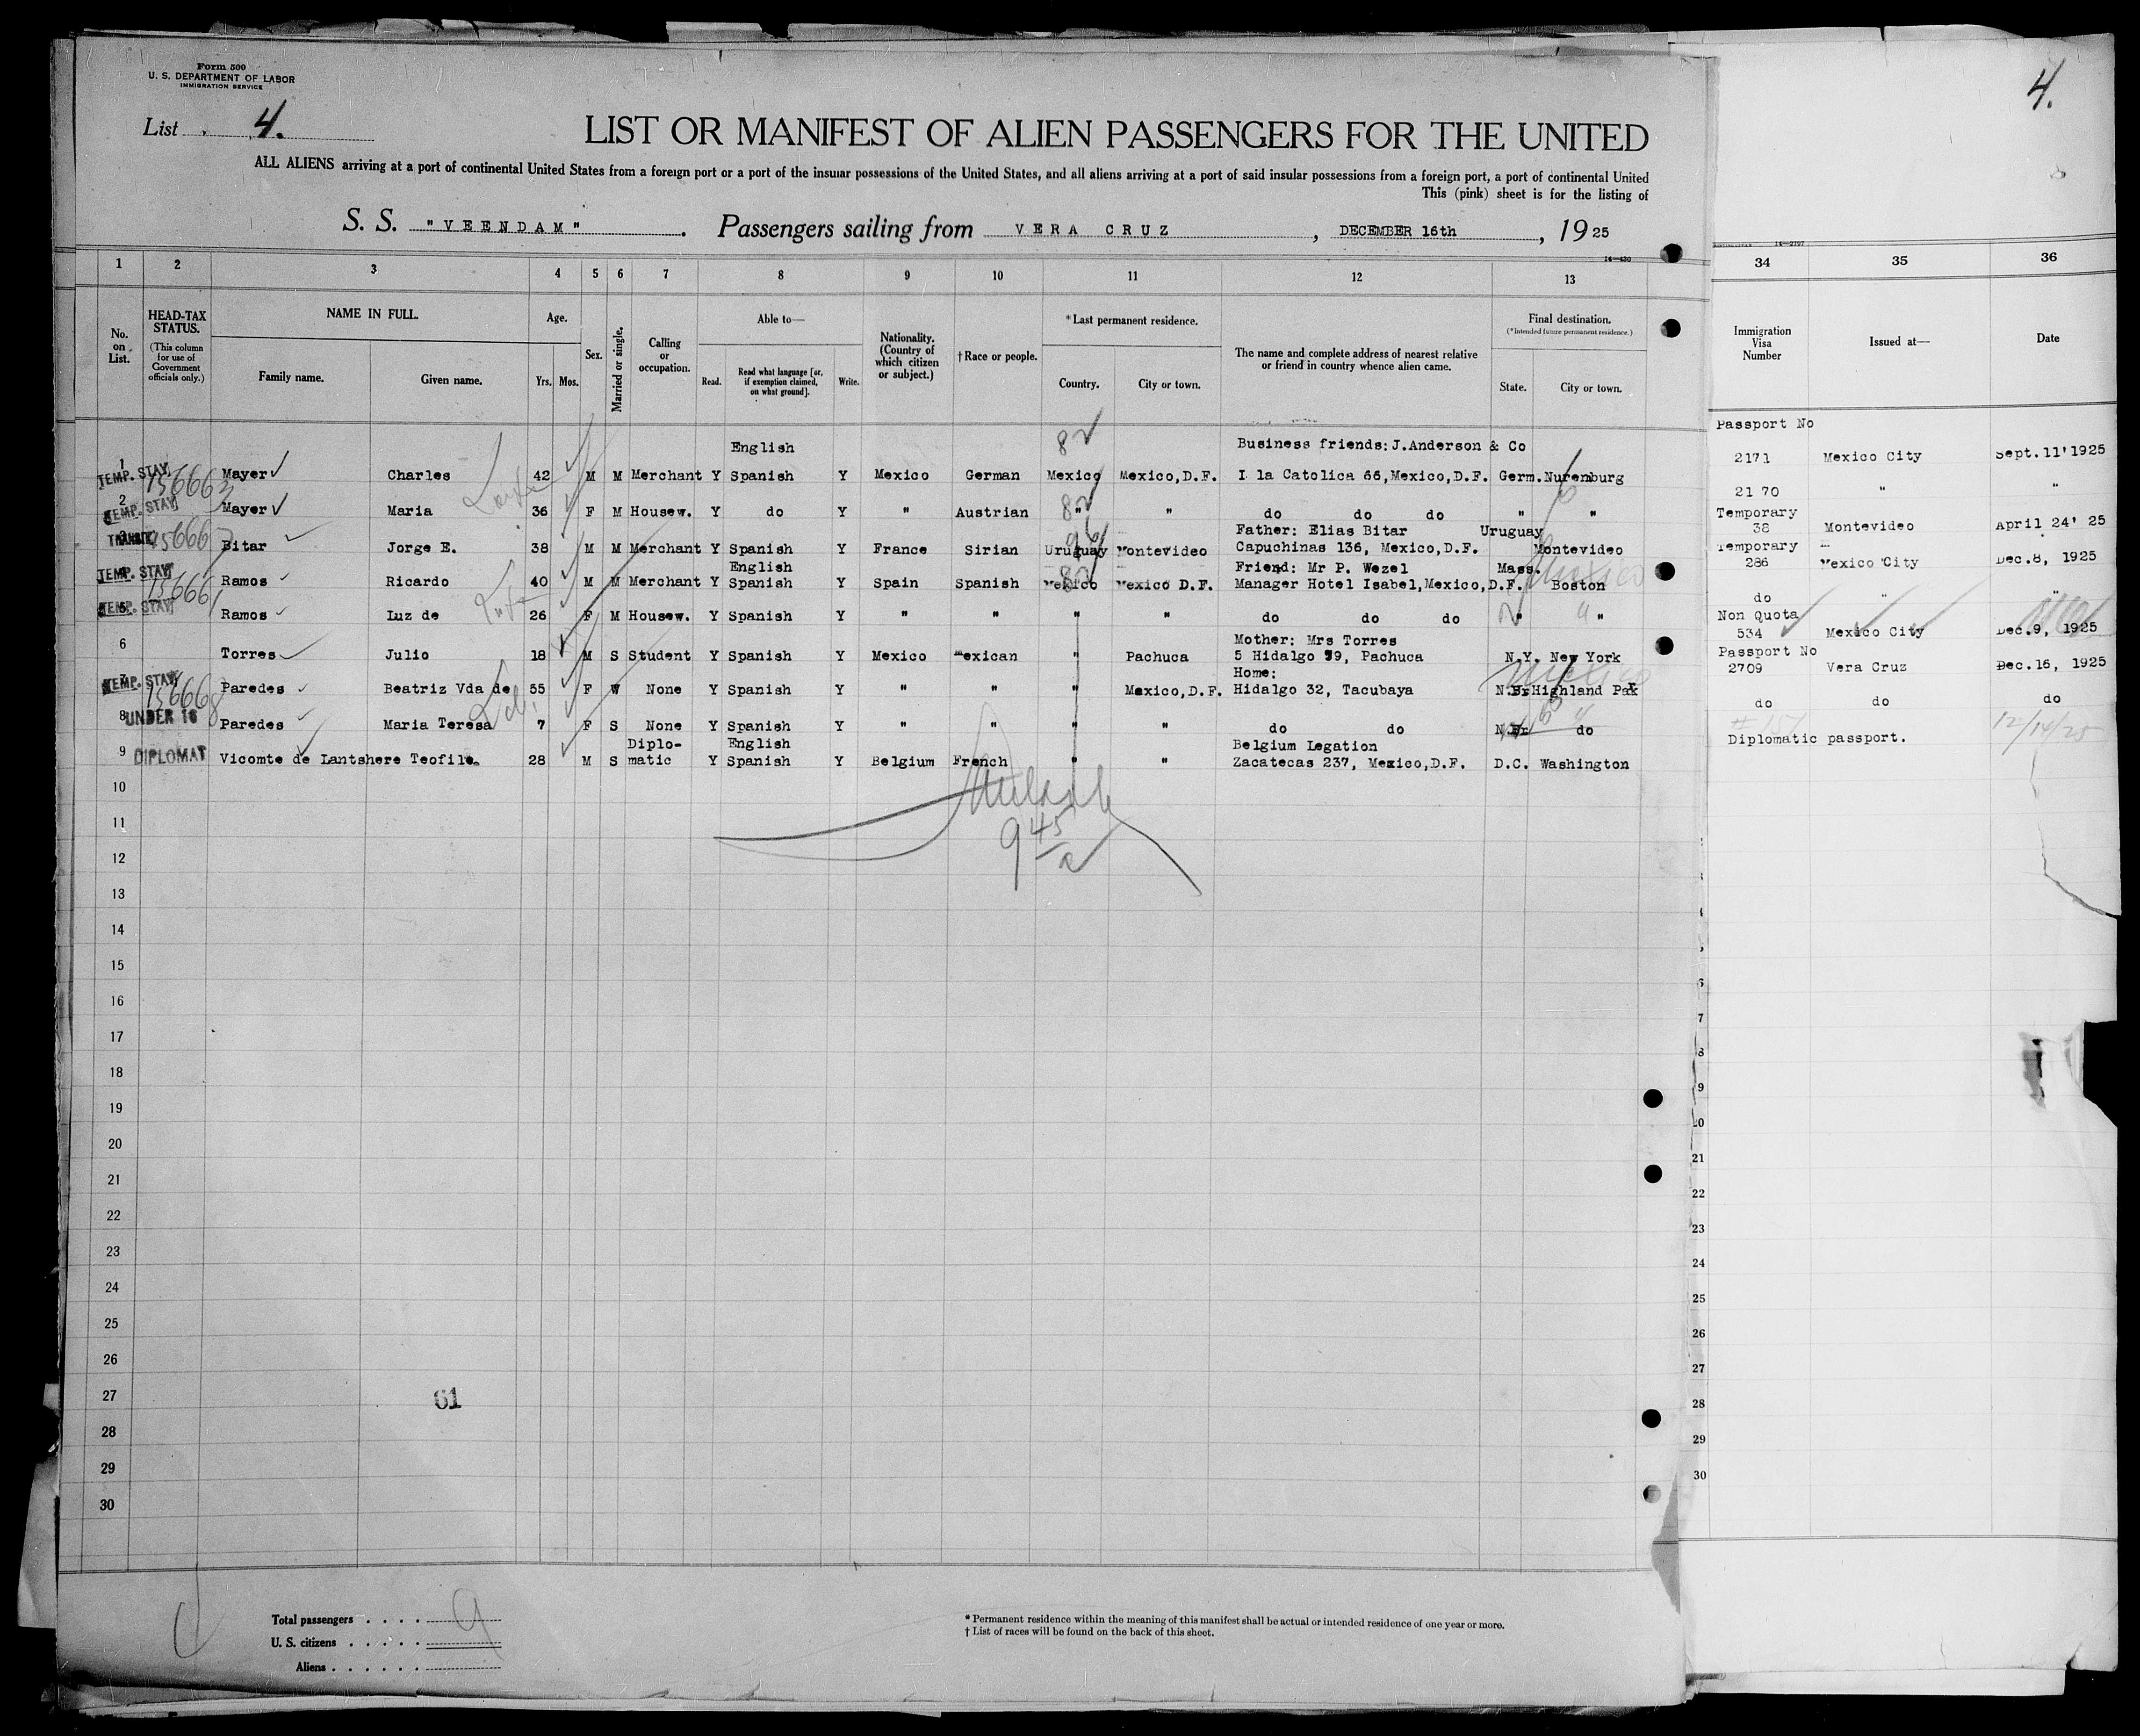 Form 500
U. S. DEPARTMENT OF LABOR
IMMIGRATION SERVICE
List 4.
4.
LIST OR MANIFEST OF ALIEN PASSENGERS FOR THE UNITED
ALL ALIENS arriving at a port of continental United States from a foreign port or a port of the insular possessions of the United States, and all aliens arriving at a port of said insular possessions from a foreign port, a port of continental United
This (pink) sheet is for the listing of
S. S. "VEENDAM". Passengers sailing from VERA CRUZ, DECEMBER 16th, 19 25
1 2 3 4 5 6 7 8 9 10 11 12 13 34 35 36
No. on List.
HEAD-TAX STATUS. (This column for use of Government officials only.)
NAME IN FULL.
Family name. Given name.
Age.
Yrs. Mos.
Sex.
Married or single.
Calling or occupation.
Able to—
Read. Read what language [or, if exemption claimed, on what ground]. Write.
Nationality. (Country of which citizen or subject.)
† Race or people.
* Last permanent residence.
Country. City or town.
The name and complete address of nearest relative or friend in country whence alien came.
Final destination.
(* Intended future permanent residence.)
State. City or town.
Immigration Visa Number
Issued at—
Date
English 82 Business friends: J.Anderson & Co Passport No
1 TEMP. STAY Mayer Charles 42 M M Merchant Y Spanish Y Mexico German Mexico Mexico,D.F. I la Catolica 66,Mexico,D.F. Germ. Nuremburg 2171 Mexico City Sept. 11' 1925
2 TEMP. STAY Mayer Maria 36 F M Housew. Y do Y " Austrian " " do do do " " 21 70 " "
Father: Elias Bitar Uruguay Temporary
TRANSIT Bitar Jorge E. 38 M M Merchant Y Spanish Y France Sirian Uruguay Montevideo Capuchinas 136, Mexico,D.F. Montevideo 38 Montevideo April 24' 25
English Friend: Mr P. Wezel Mass. Temporary
TEMP. STAY Ramos Ricardo 40 M M Merchant Y Spanish Y Spain Spanish Mexico Mexico D.F. Manager Hotel Isabel,Mexico,D.F. Boston 286 Mexico City Dec.8, 1925
5 TEMP. STAY Ramos Luz de 26 F M Housew. Y Spanish Y " " " " do do do " " do " "
Mother: Mrs Torres Non Quota
6 Torres Julio 18 M S Student Y Spanish Y Mexico Mexican " Pachuca 5 Hidalgo 39, Pachuca N.Y. New York 534 Mexico City Dec.9, 1925
Home: Passport No
7 TEMP. STAY Paredes Beatriz Vda de 55 F W None Y Spanish Y " " " Mexico,D.F. Hidalgo 32, Tacubaya Highland Pak 2709 Vera Cruz Dec.16, 1925
8 UNDER 16 Paredes Maria Teresa 7 F S None Y Spanish Y " " " " do do do do do do
Diplo- English Belgium Legation 12/14/25
9 DIPLOMAT Vicomte de Lantshere Teofile. 28 M S matic Y Spanish Y Belgium French " " Zacatecas 237, Mexico,D.F. D.C. Washington Diplomatic passport.
10
11
12
13
14
15
16
17
18
19
20
21
22
23
24
25
26
27
28
29
30
61
Total passengers 9
U. S. citizens
Aliens
* Permanent residence within the meaning of this manifest shall be actual or intended residence of one year or more.
† List of races will be found on the back of this sheet.